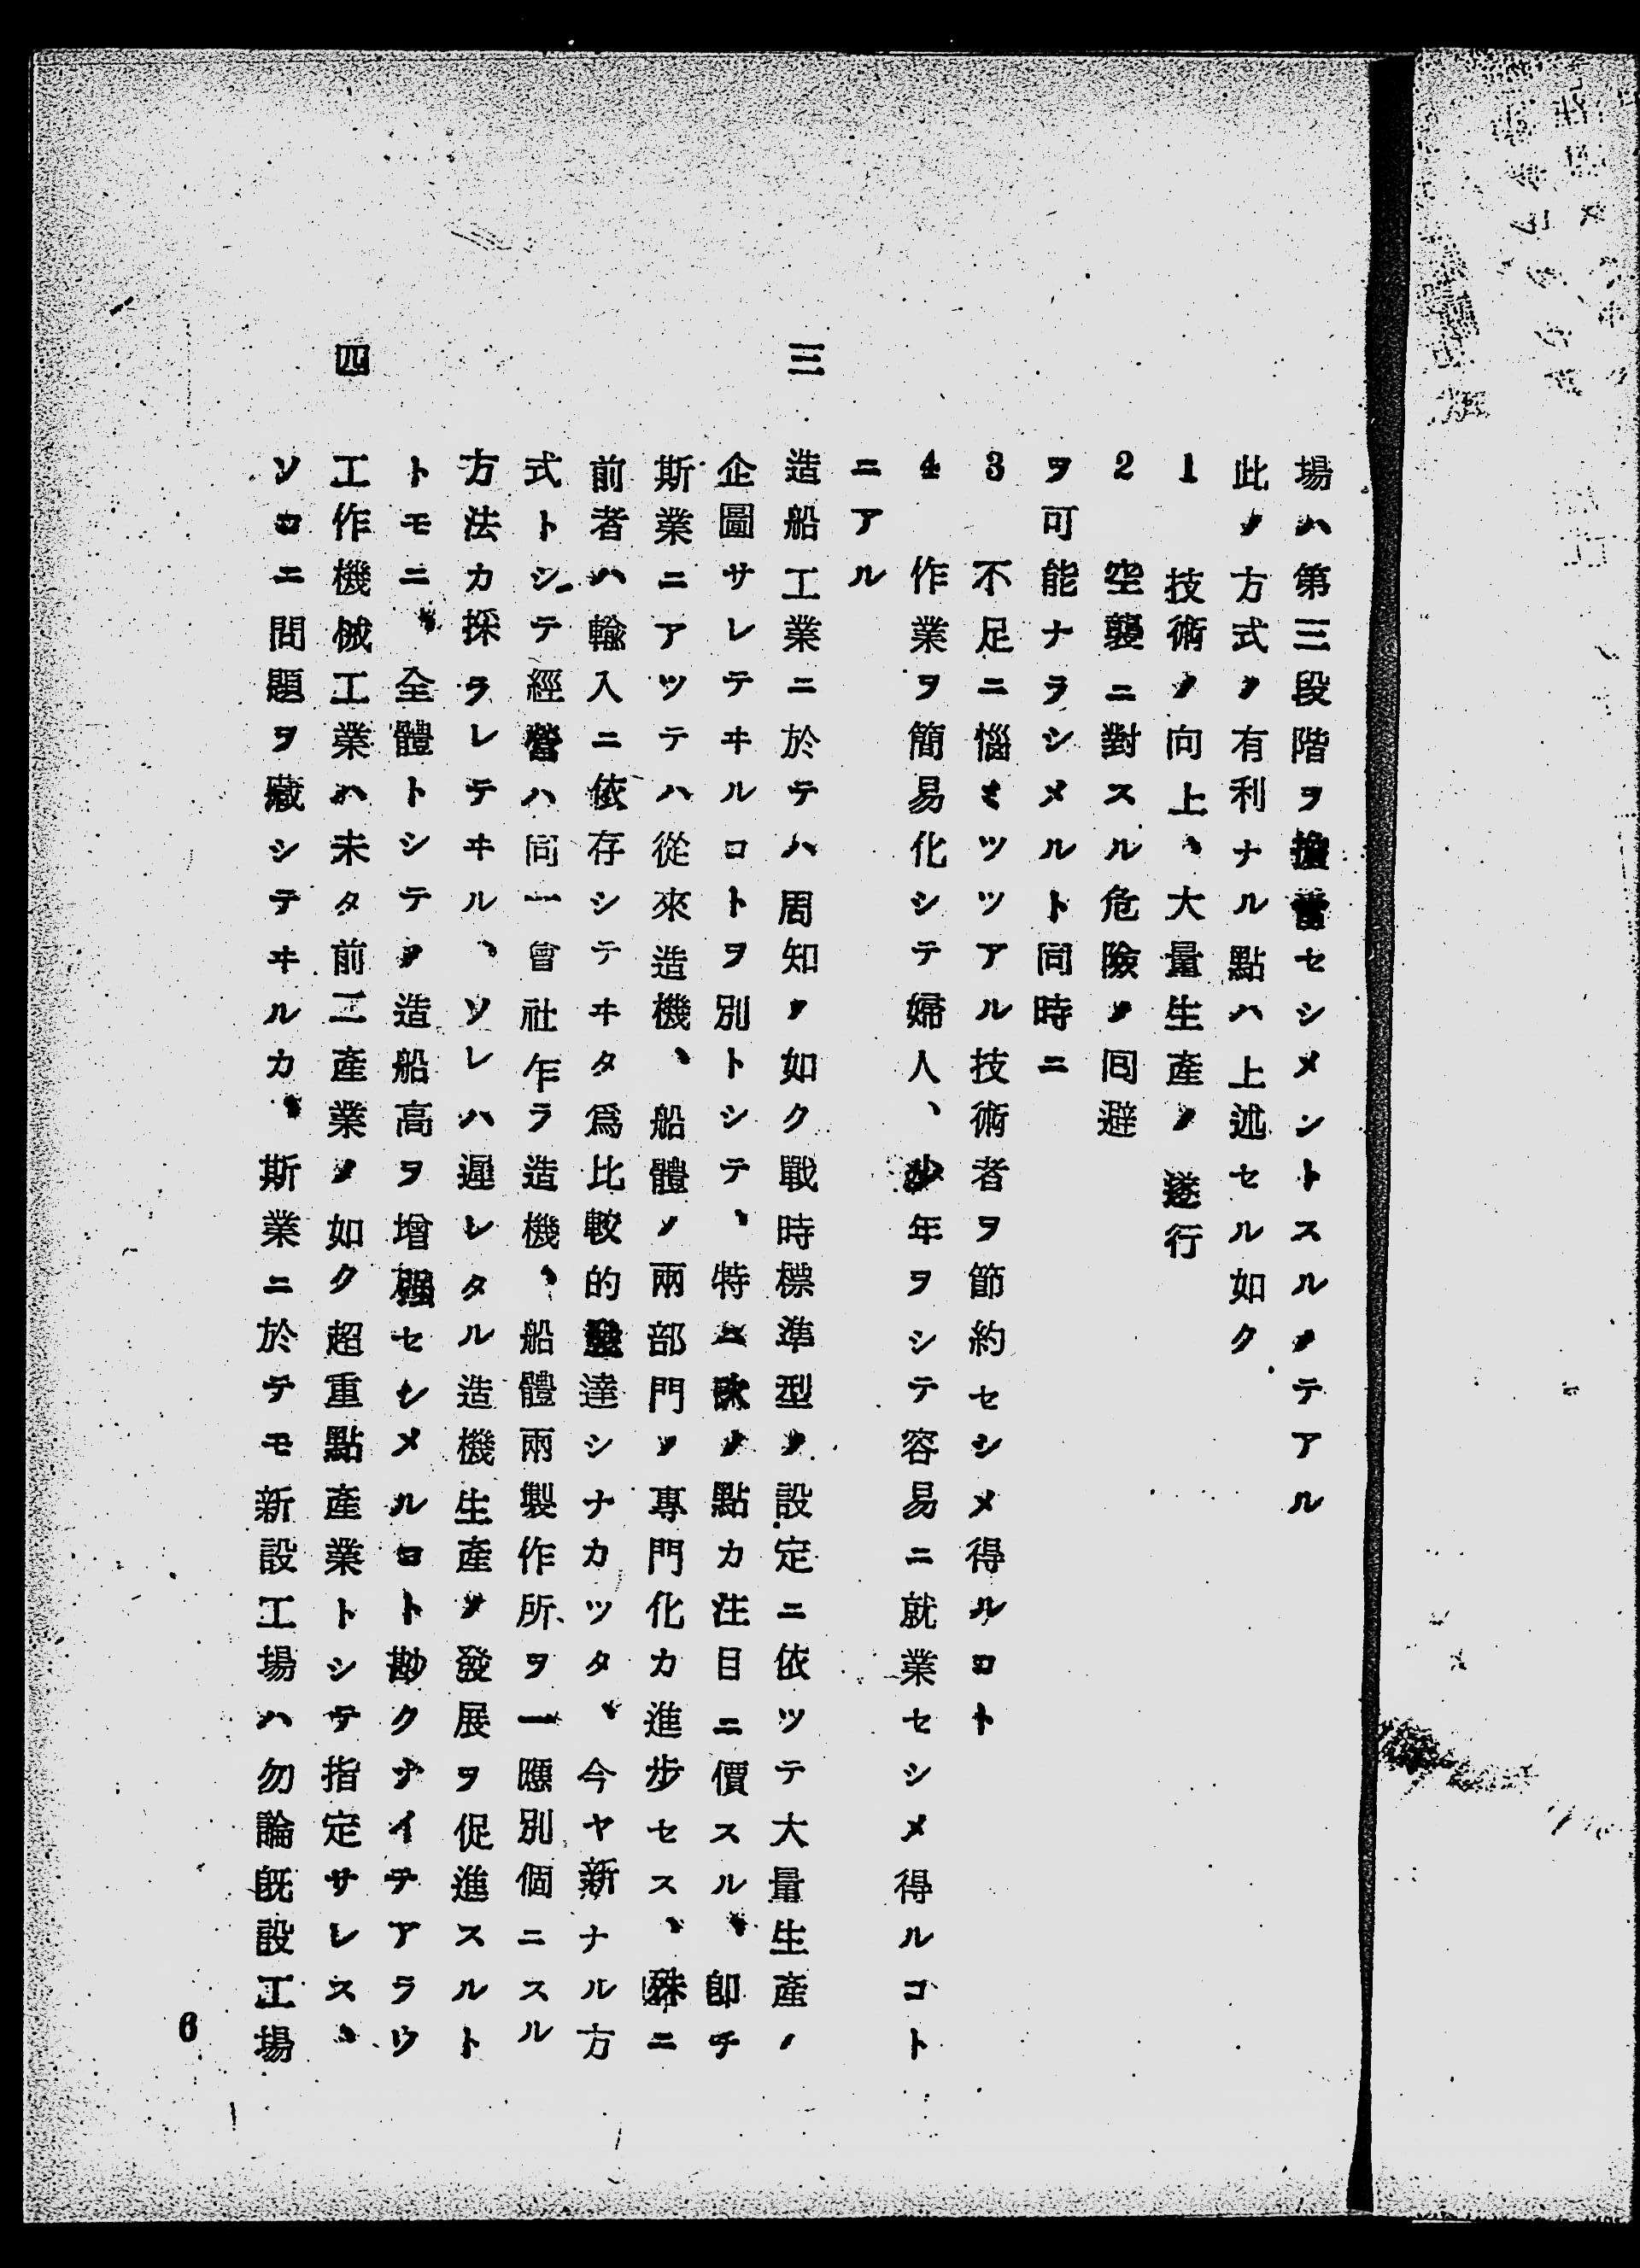 場ハ第三段階ヲ擔當セシメントスルノテアル
此ノ方式ノ有利ナル點ハ上述セル如ク
1 技術ノ向上、大量生產ノ遂行
2 空襲ニ對スル危險ノ囘避
ヲ可能ナラシメルト同時ニ
3 不足ニ惱ミツツアル技術者ヲ節約セシメ得ルコト
4 作業ヲ簡易化シテ婦人、少年ヲシテ容易ニ就業セシメ得ルコト
ニアル
三 造船工業ニ於テハ周知ノ如ク戰時標準型ノ設定ニ依ツテ大量生產ノ
企圖サレテヰルコトヲ別トシテ、特ニ次ノ點カ注目ニ價スル、卽チ
斯業ニアツテハ從來造機、船體ノ兩部門ノ專門化カ進步セス、殊ニ
前者ハ輸入ニ依存シテヰタ爲比較的發達シナカツタ、今ヤ新ナル方
式トシテ經營ハ同一會社乍ラ造機、船體兩製作所ヲ一應別個ニスル
方法カ採ラレテヰル、ソレハ遲レタル造機生產ノ發展ヲ促進スルト
トモニ、全體トシテノ造船高ヲ增强セシメルコト尠クナイテアラウ
四 工作機械工業ハ未タ前二產業ノ如ク超重點產業トシテ指定サレス、
ソコニ問題ヲ藏シテヰルカ、斯業ニ於テモ新設工場ハ勿論既設工場
6